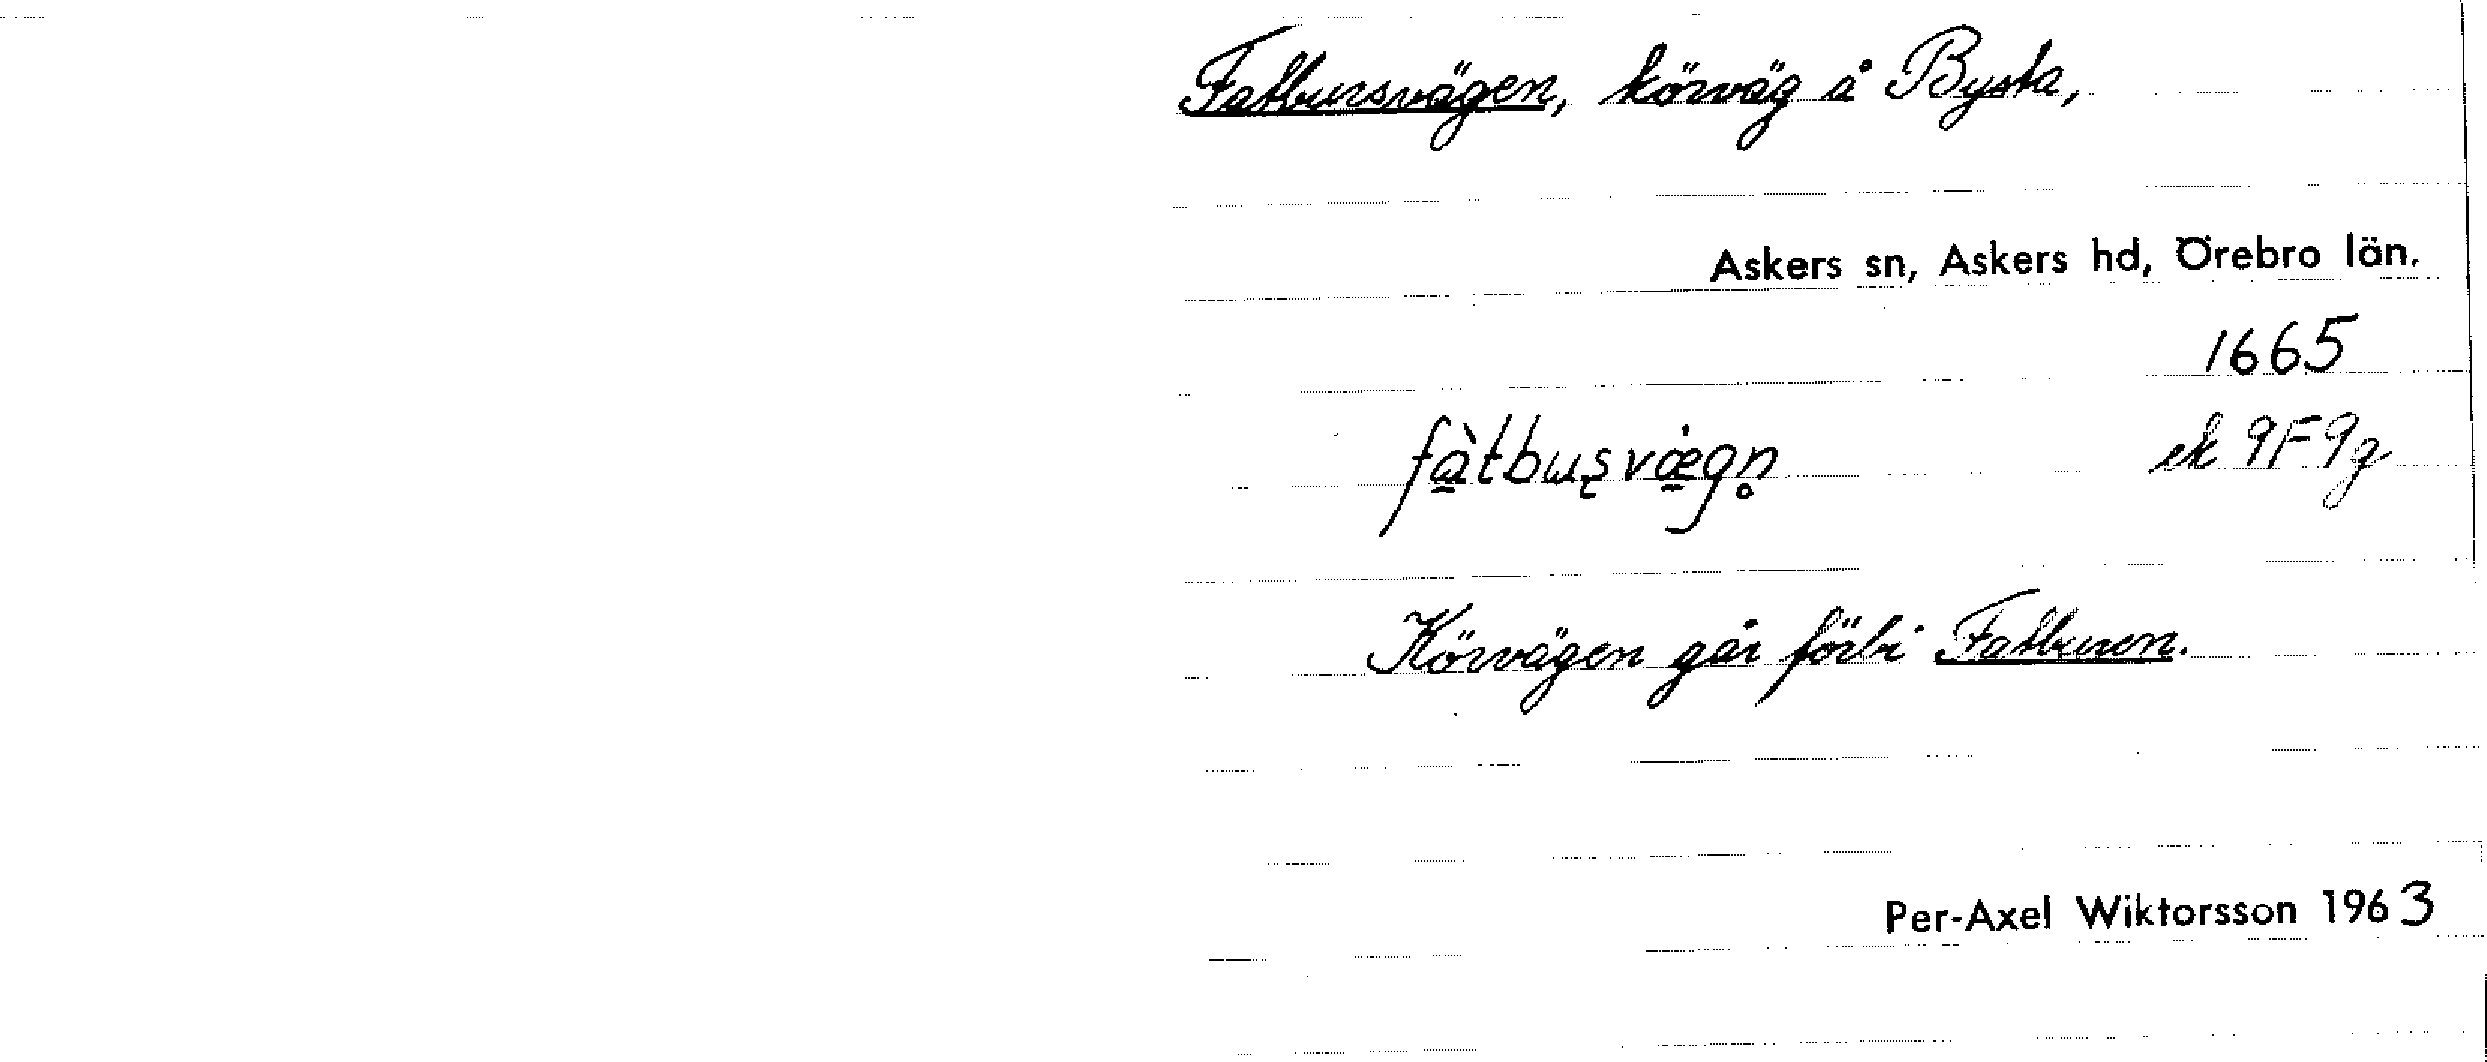 Fatbursvägen, körväg å Bysta,
Askers sn, Askers hd, Örebro län.
1665
fàtbuʂvægn̥ ek 9F9g
Körvägen går förbi Fatburen.
Per-Axel Wiktorsson 1963